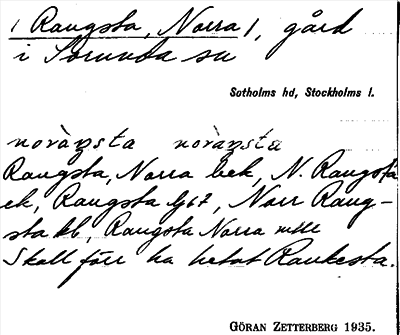 1 Rangsta, Norra 1, gård
i Sorunda sn
Sotholms hd, Stockholms l.
noràŋsta noràŋsta
Rangsta, Norra bek, N. Rangsta
ek, Rangsta Gb7, Norr Rang-
sta kb, Rangsta Norra mtll
Skall förr ha hetat Rankesta.
GÖRAN ZETTERBERG 1935.